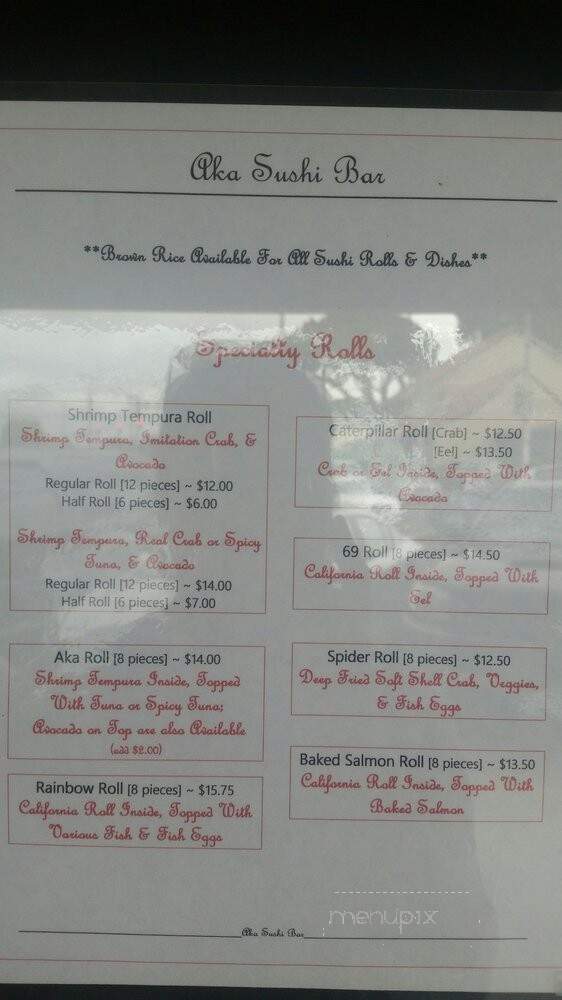 Aka Sushi Bar
**Brown Rice Available For All Sushi Rolls & Dishes**
Specialty Rolls
Shrimp Tempura Roll
Shrimp Tempura, Imitation Crab, &
Avocado
Regular Roll [12 pieces] ~ $12.00
Half Roll [6 pieces] ~ $6.00
Shrimp Tempura, Real Crab or Spicy
Tuna, & Avocado
Regular Roll [12 pieces] ~ $14.00
Half Roll [6 pieces] ~ $7.00
Aka Roll [8 pieces] ~ $14.00
Shrimp Tempura Inside, Topped
With Tuna or Spicy Tuna;
Avocado on Top are also Available
(add $2.00)
Rainbow Roll [8 pieces] ~ $15.75
California Roll Inside, Topped With
Various Fish & Fish Eggs
Caterpillar Roll [Crab] ~ $12.50
[Eel] ~ $13.50
Crab or Eel Inside, Topped With
Avocado
69 Roll [8 pieces] ~ $14.50
California Roll Inside, Topped With
Eel
Spider Roll [8 pieces] ~ $12.50
Deep Fried Soft Shell Crab, Veggies,
& Fish Eggs
Baked Salmon Roll [8 pieces] ~ $13.50
California Roll Inside, Topped With
Baked Salmon
menupix
Aka Sushi Bar